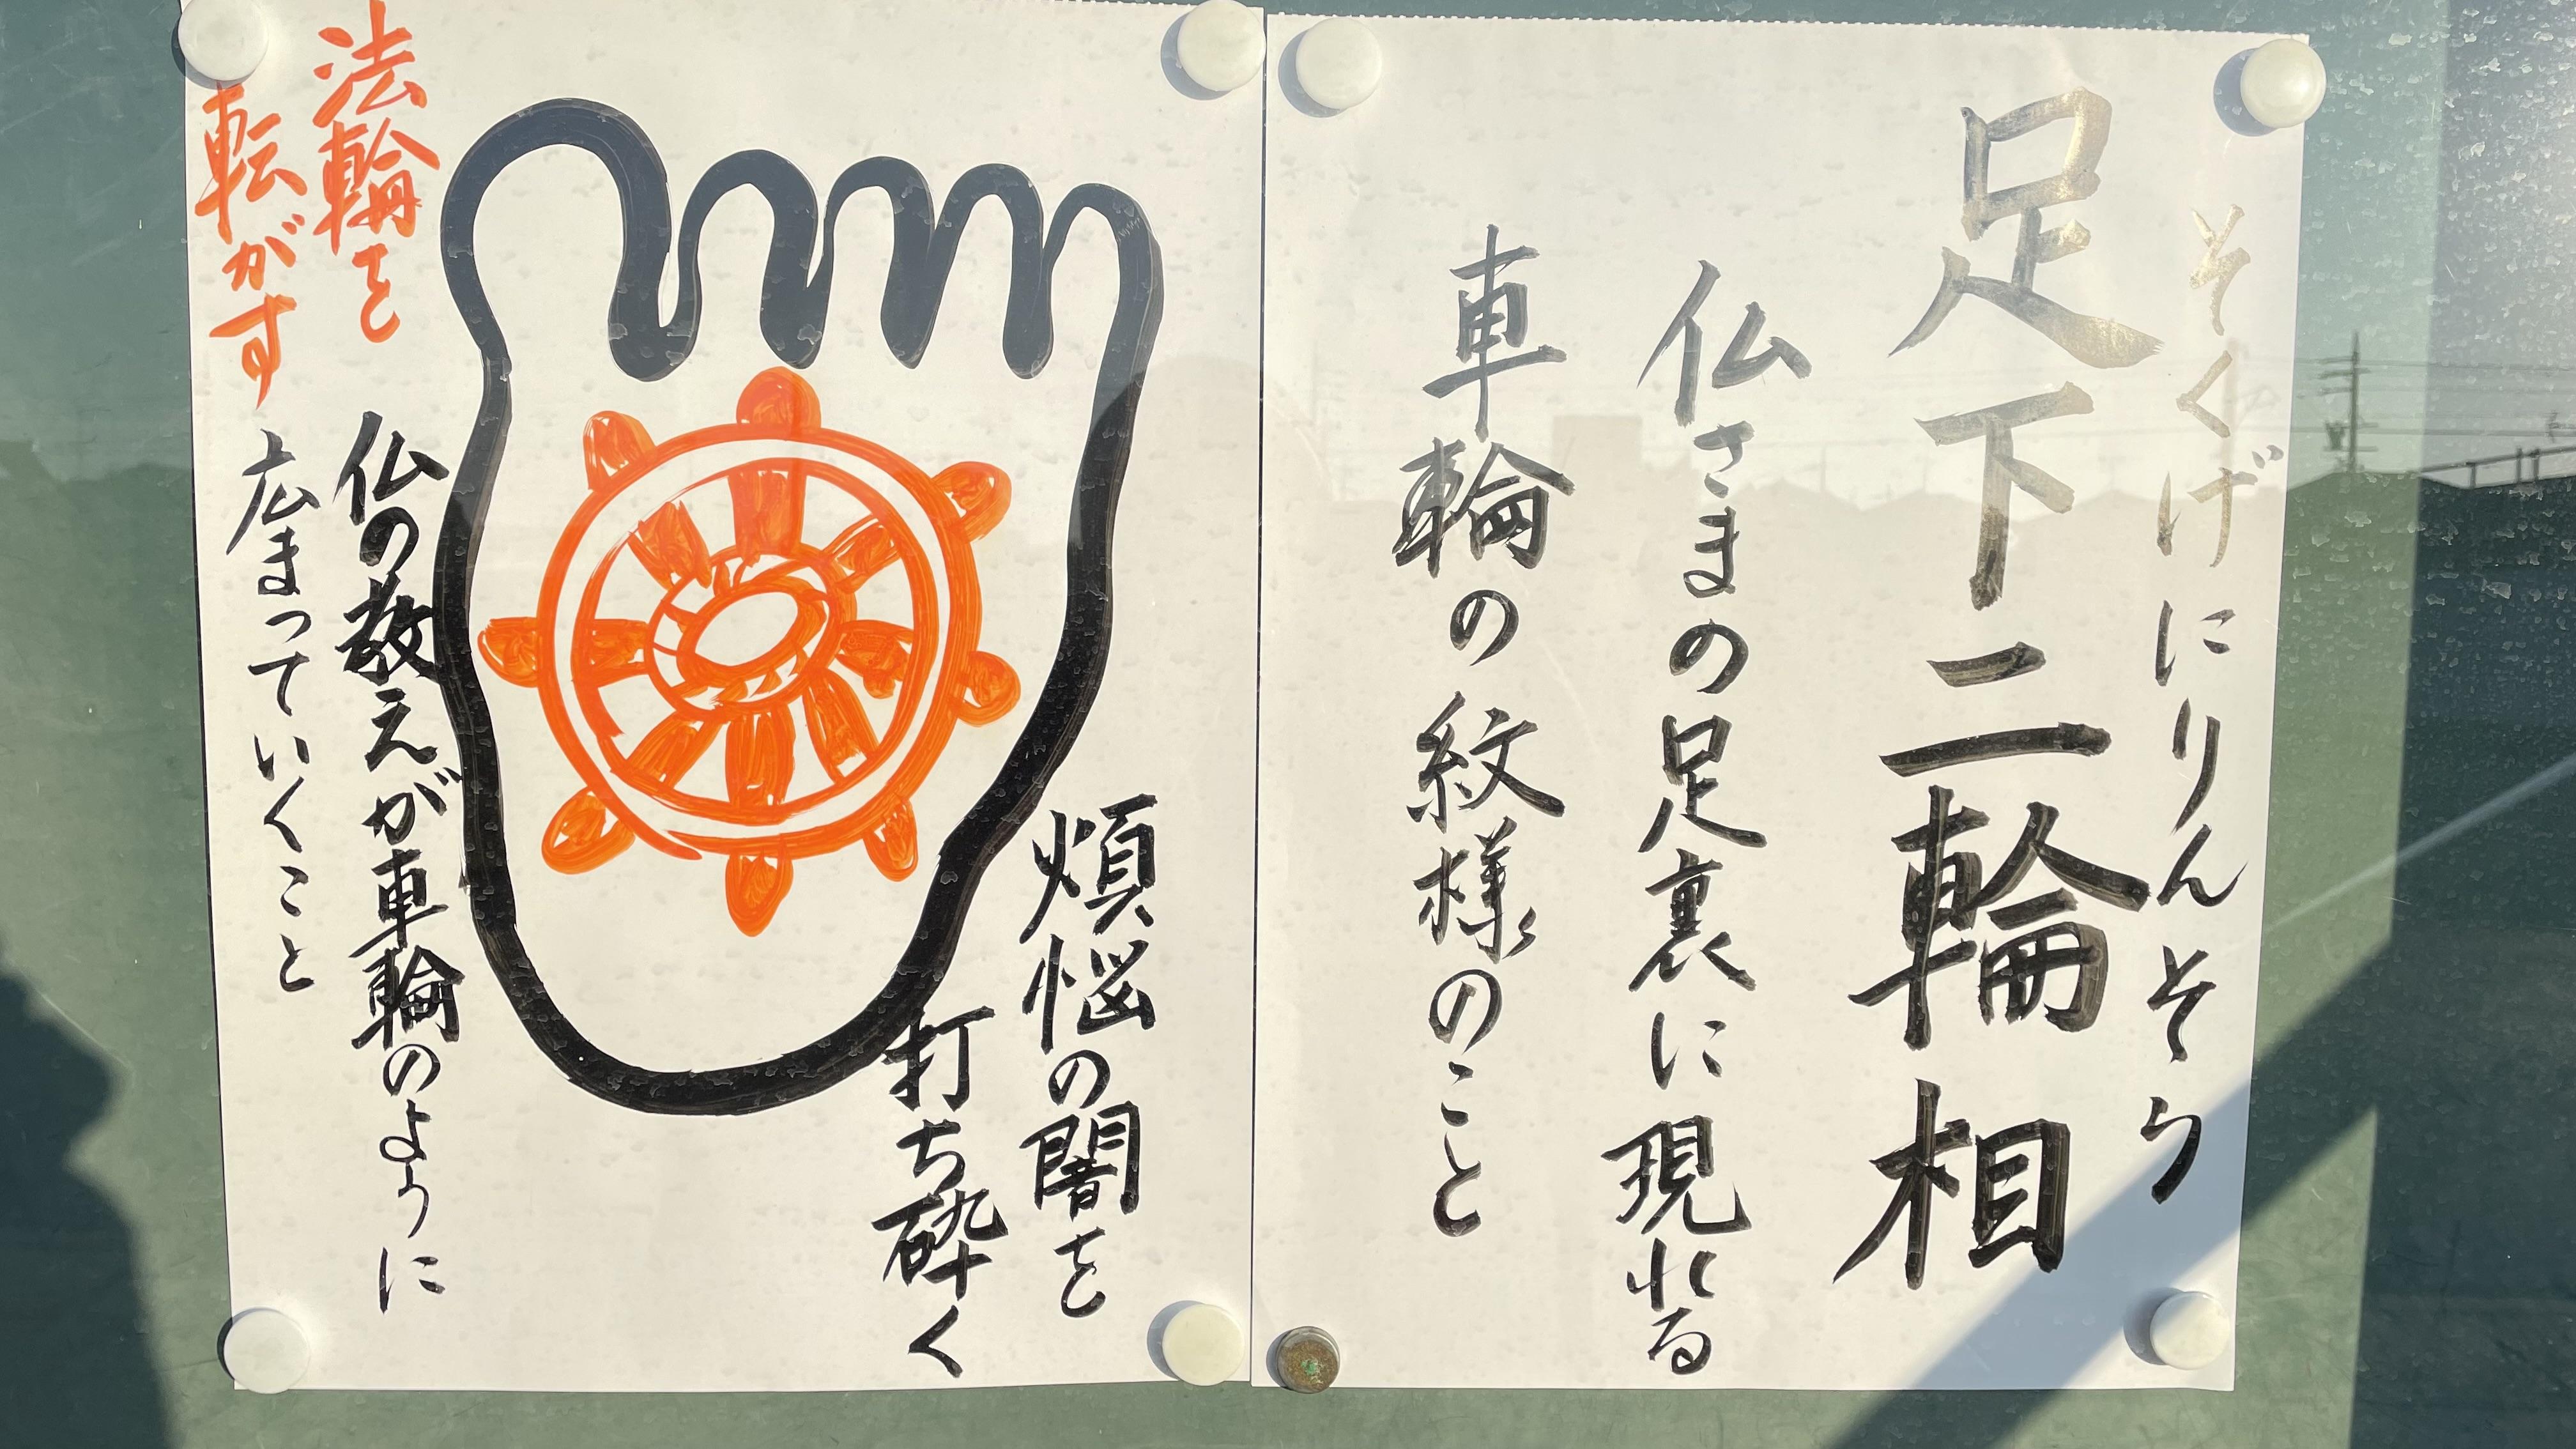 そくげにりんそう
足下二輪相
仏さまの足裏に現れる
車輪の紋様のこと
煩悩の闇を
打ち砕く
法輪を
転がす
仏の教えが車輪のように
広まっていくこと